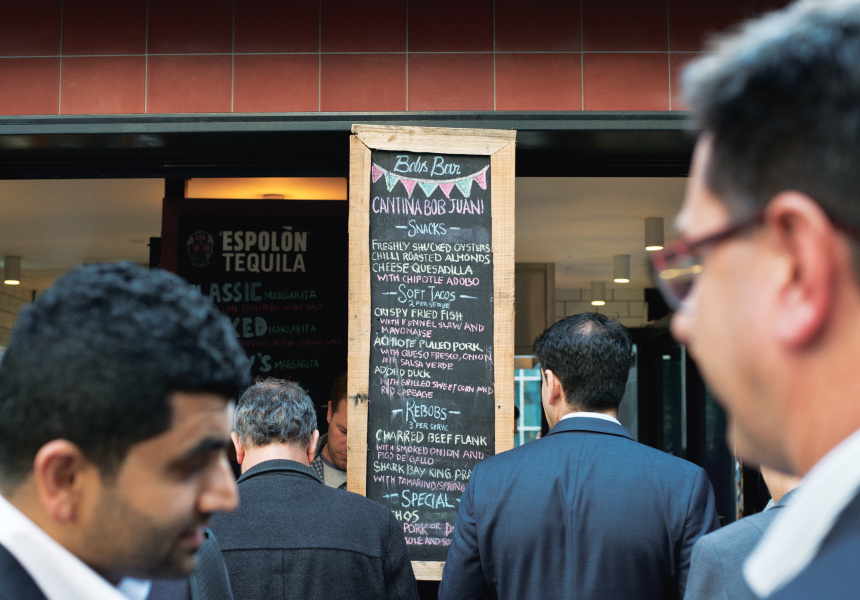 Bobs Bar
CANTINA BOB JUAN!
- SNACKS -
FRESHLY SHUCKED OYSTERS
CHILLI ROASTED ALMONDS
CHEESE QUESADILLA
WITH CHIPOTLE ADOBO
- SOFT TACOS -
2 PER SERVE
CRISPY FRIED FISH
WITH FENNEL SLAW AND
MAYONAISE
ACHIOTE PULLED PORK
WITH QUESO FRESCO, ONION
SALSA VERDE
ADOBO DUCK
WITH GRILLED SWEETCORN AND
RED CABBAGE
- KEBOBS -
3 PER SERVE
CHARRED BEEF FLANK
WITH SMOKED ONION AND
PICO DE GALLO
SHARK BAY KING PRA
WITH TAMARIND/SPRING
- SPECIAL -
HOS
PORK OR D
"ESPOLÒN"
TEQUILA
LASSIC MARGARITA
KED MARGARITA
Y'S MARGARITA